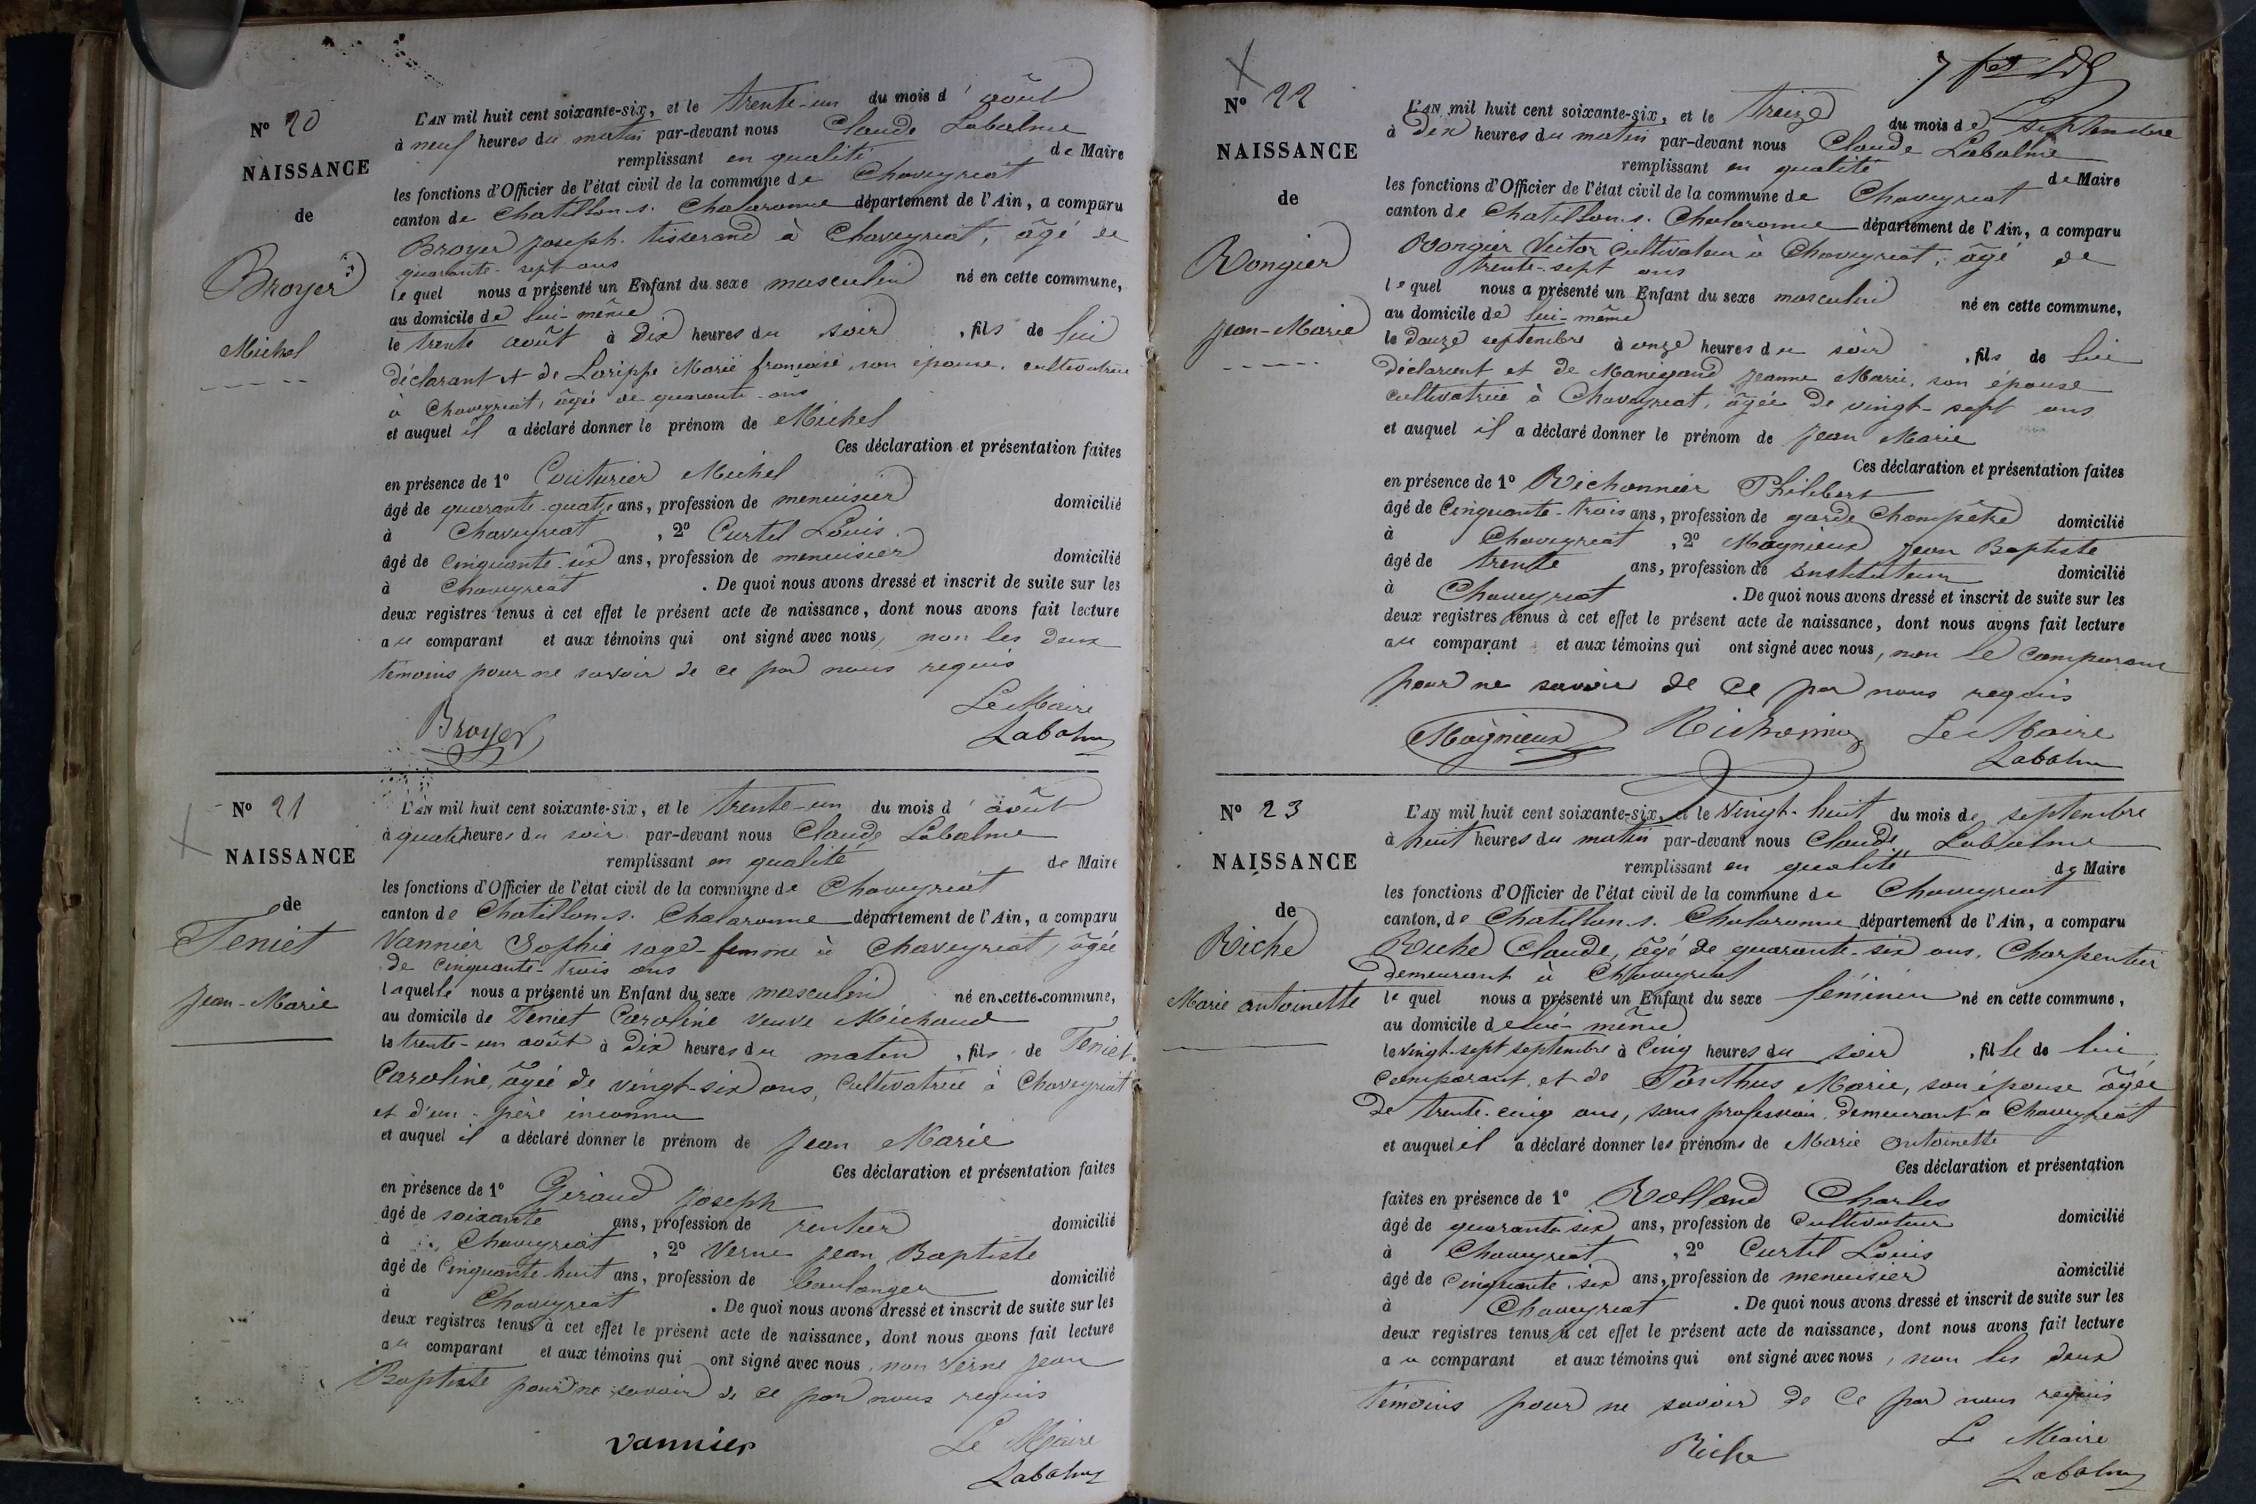 N° 20
NAISSANCE
de
Broyer
Michel
L'AN mil huit cent soixante-six, et le trente-un du mois d'août
à neuf heures du matin par-devant nous Claude Labalme
remplissant en qualité de Maire
les fonctions d'Officier de l'état civil de la commune de Chaveyriat
canton de Chatillon s. Chalaronne département de l'Ain, a comparu
Broyer Joseph tisserand à Chaveyriat, âgé de
quarante-sept ans
lequel nous a présenté un Enfant du sexe masculin né en cette commune,
au domicile de lui-même
le trente août à Dix heures du soir, fils de lui
déclarant et de Larippe Marie françoise, son épouse, cultivatrice
à Chaveyriat, âgée de quarante ans
et auquel il a déclaré donner le prénom de Michel
Ces déclaration et présentation faites
en présence de 1° Couturier Michel
âgé de quarante-quatre ans, profession de menuisier domicilié
à Chaveyriat, 2° Curtil Louis
âgé de cinquante-six ans, profession de menuisier domicilié
à Chaveyriat. De quoi nous avons dressé et inscrit de suite sur les
deux registres tenus à cet effet le présent acte de naissance, dont nous avons fait lecture
au comparant et aux témoins qui ont signé avec nous, non les deux
témoins pour ne savoir de ce par nous requis
Le Maire
Broyer Labalme
N° 21
NAISSANCE
de
Teniet
Jean-Marie
L'AN mil huit cent soixante-six, et le trente-un du mois d'août
à quatre heures du soir par-devant nous Claude Labalme
remplissant en qualité de Maire
les fonctions d'Officier de l'état civil de la commune de Chaveyriat
canton de Chatillon s. Chalaronne département de l'Ain, a comparu
Vannier Sophie sage-femme à Chaveyriat, âgée
de cinquante-trois ans
laquelle nous a présenté un Enfant du sexe masculin né en cette commune,
au domicile de Teniet Caroline veuve Michaud
le trente-un août à Dix heures du matin, fils de Teniet
Caroline, âgée de vingt-six ans, Cultivatrice à Chaveyriat
et d'un père inconnu
et auquel il a déclaré donner le prénom de Jean Marie
Ces déclaration et présentation faites
en présence de 1° Giraud Joseph
âgé de soixante ans, profession de rentier domicilié
à Chaveyriat, 2° Verne Jean Baptiste
âgé de Cinquante-huit ans, profession de boulanger domicilié
à Chaveyriat. De quoi nous avons dressé et inscrit de suite sur les
deux registres tenus à cet effet le présent acte de naissance, dont nous avons fait lecture
au comparant et aux témoins qui ont signé avec nous, non Verne Jean
Baptiste pour ne savoir de ce par nous requis
Vannier Le Maire
Labalme
N° 22
NAISSANCE
de
Rongier
Jean-Marie
L'AN mil huit cent soixante-six, et le treize du mois de Septembre
à Dix heures du matin par-devant nous Claude Labalme
remplissant en qualité de Maire
les fonctions d'Officier de l'état civil de la commune de Chaveyriat
canton de Chatillon s. Chalaronne département de l'Ain, a comparu
Rongier Victor Cultivateur à Chaveyriat, âgé de
trente-sept ans
lequel nous a présenté un Enfant du sexe masculin né en cette commune,
au domicile de lui-même
le douze septembre à onze heures du soir, fils de lui
déclarant et de Manigand Jeanne Marie, son épouse
cultivatrice à Chaveyriat, âgée de vingt-sept ans
et auquel il a déclaré donner le prénom de Jean Marie
Ces déclaration et présentation faites
en présence de 1° Richonnier Philibert
âgé de Cinquante-trois ans, profession de garde Champêtre domicilié
à Chaveyriat, 2° Magnieux Jean Baptiste
âgé de trente ans, profession de Instituteur domicilié
à Chaveyriat. De quoi nous avons dressé et inscrit de suite sur les
deux registres tenus à cet effet le présent acte de naissance, dont nous avons fait lecture
au comparant et aux témoins qui ont signé avec nous, non le comparant
pour ne savoir de ce par nous requis
Magnieux Richonnier Le Maire
Labalme
N° 23
NAISSANCE
de
Riche
Marie antoinette
L'AN mil huit cent soixante-six, et le vingt-huit du mois de septembre
à huit heures du matin par-devant nous Claude Labalme
remplissant en qualité de Maire
les fonctions d'Officier de l'état civil de la commune de Chaveyriat
canton de Chatillon s. Chalaronne département de l'Ain, a comparu
Riche Claude, âgé de quarante-six ans, Charpentier
demeurant à Chaveyriat
lequel nous a présenté un Enfant du sexe féminin né en cette commune,
au domicile de lui-même
le vingt-sept septembre à Cinq heures du soir, fille de lui
comparant, et de Ponthus Marie, son épouse âgée
de trente-cinq ans, sans profession, demeurant à Chaveyriat
et auquel il a déclaré donner les prénoms de Marie antoinette
Ces déclaration et présentation
faites en présence de 1° Rolland Charles
âgé de quarante-six ans, profession de Cultivateur domicilié
à Chaveyriat, 2° Curtil Louis
âgé de cinquante-six ans, profession de menuisier domicilié
à Chaveyriat. De quoi nous avons dressé et inscrit de suite sur les
deux registres tenus à cet effet le présent acte de naissance, dont nous avons fait lecture
au comparant et aux témoins qui ont signé avec nous, non les deux
témoins pour ne savoir de ce par nous requis
Riche Le Maire
Labalme